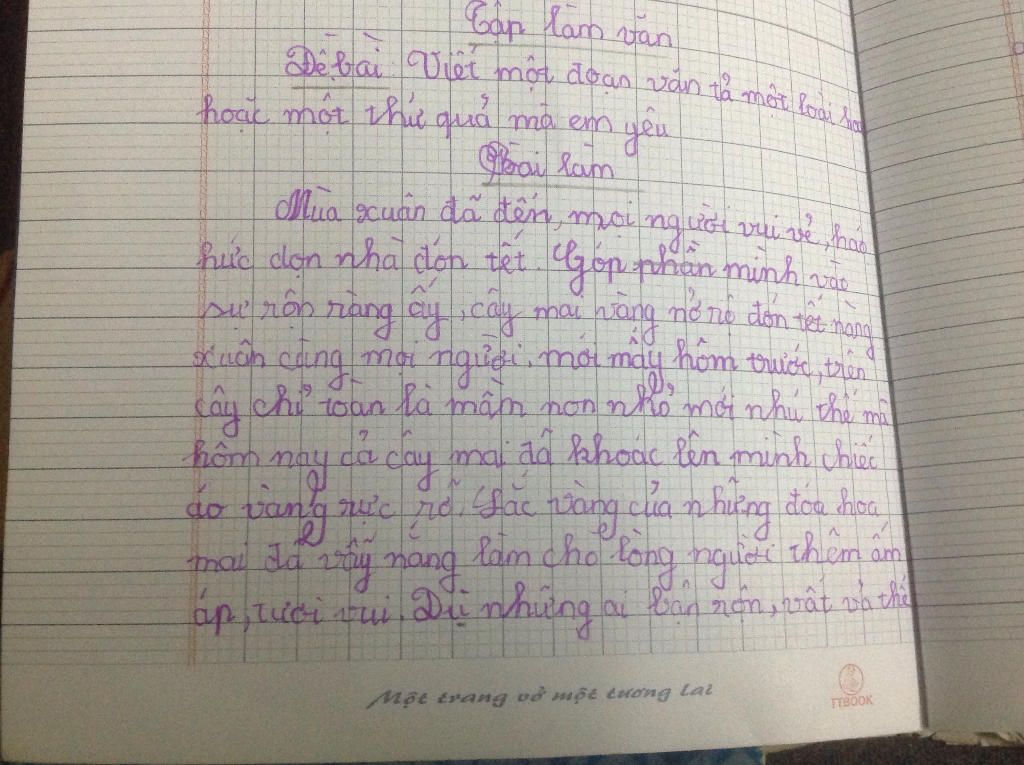 Tập làm văn
Đề bài Viết một đoạn văn tả một loài hoa
hoặc một thứ quả mà em yêu
Bài làm
Mùa xuân đã đến, mọi người vui vẻ, háo
hức dọn nhà đón tết. Góp phần mình vào
sự rộn ràng ấy, cây mai vàng nở rộ đón tết nàng
xuân cùng mọi người. mới mấy hôm trước, trên
cây chỉ toàn là mầm non nhỏ mới nhú thế mà
hôm nay cả cây mai đã khoác lên mình chiếc
áo vàng rực rỡ. Sắc vàng của những đóa hoa
mai đã vẫy nắng làm cho lòng người thêm ấm
áp, tươi vui. Dù những ai bận rộn, vất vả thế
Một trang vở một tương lai
TTBOOK